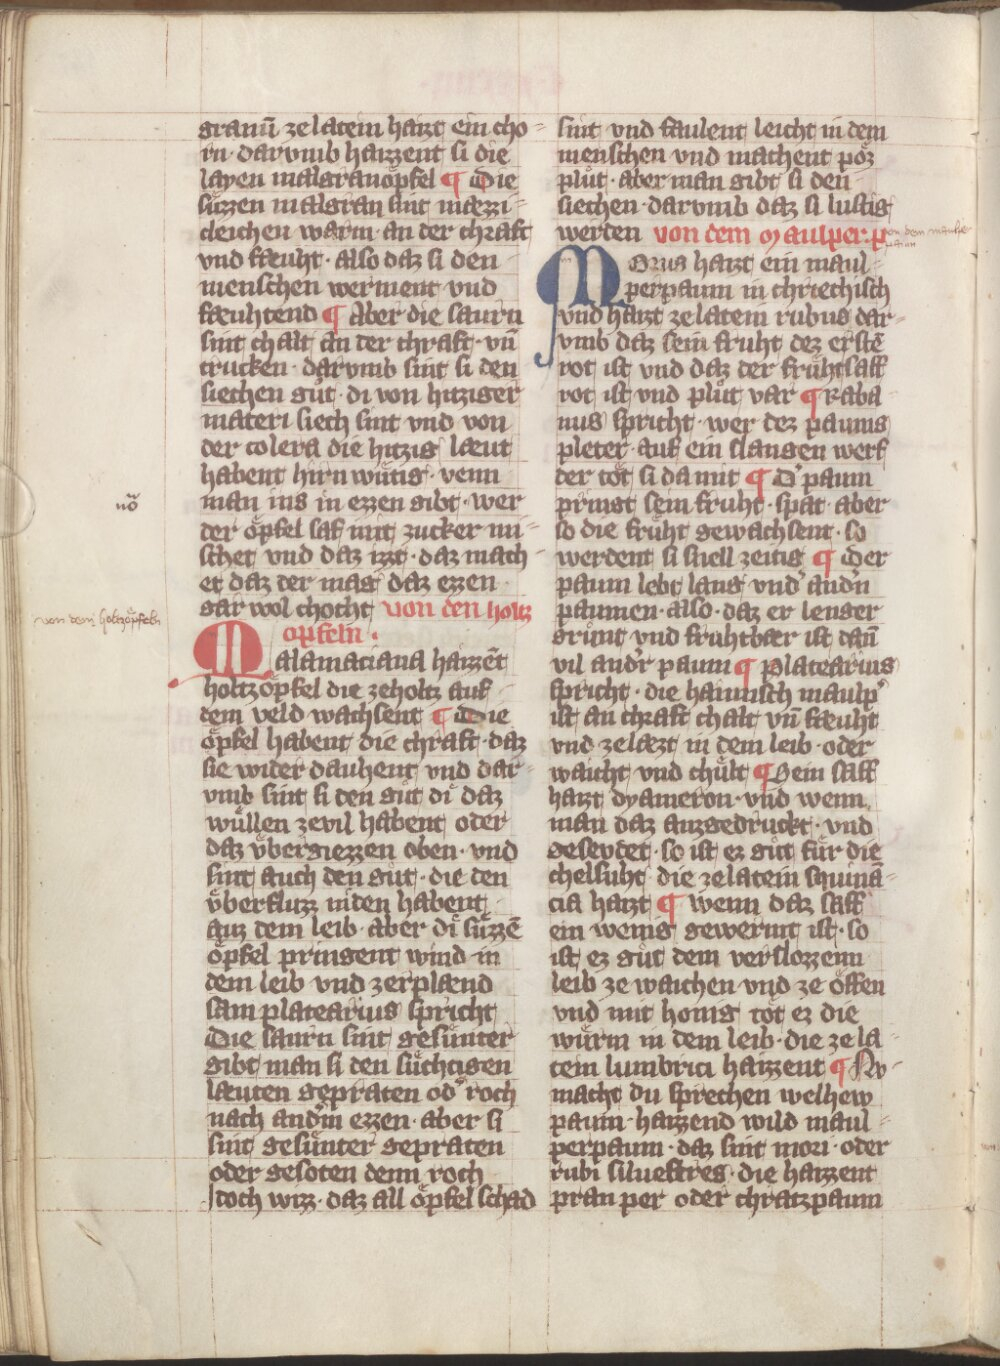 granū ze latein haizt ein cho=
rn · darvmb haizzent si die
layen malgranöpfel ¶ Die
süzzen malgran sint mæzzi=
cleichen warm · an der chraft
vnd fæuht · also daz si den
menschen werment vnd
fæuhtend ¶ Aber die saurn
sint chalt an der chraft · vn̄
trucken · darvmb sint si den
siechen gůt · di von hitziger
materi siech sint vnd von
der colera die hitzig læut
habent hirn wütig · wenn
man ins in ezzen gibt · wer
nō
der öpfel saf mit zucker mi=
schet vnd daz izzt · daz mach=
et daz der mag daz ezzen
gar wol chocht von den holtz
öpfeln ·
von dem holtzöpfeln
Malamaciana haizzēt
holtzöpfel die ze holtz auf
dem veld wachsent ¶ Die
öpfel habent die chraft · daz
sie wider dauhent vnd dar=
vmb sint si den gůt di daz
wüllen ze vil habent oder
daz vbergiezzen oben · vnd
sint auch den gůt · die den
vberfluzz niden habent
auz dem leib · aber di süzzē
öpfel pringent wind in
dem leib vnd zerplænd
sam platearius spricht
Die saurn sint gesünter
gibt man si den süchtigen
læuten gepraten od' roch
nach and'm ezzen · aber si
sint gesünter gepraten
oder gesoten denn roch
Doch wizz · daz all öpfel schad
sint vnd faulent leicht in dem
menschen vnd machent pöz
plůt · aber man gibt si den
siechen · darvmb daz si lustig
werden von dem Maulper · p
von dem maulper
paum
Morus haizt ein maul=
perpaum in chriechisch
vnd haizt ze latein rubus dar=
vmb daz sein fruht dez erstē
rot ist vnd daz der frühtsaff
rot ist vnd plůt var ¶ Raba
nus spricht · wer dez paums
pleter auf ein slangen werf
der töt si da mit ¶ D' paum
pringt sein fruht · spat aber
so die früht gewachsent · so
werdent si snell zeitig ¶ Der
paum lebt lang vnd' and'n
paumen · also · daz er lenger
grünt vnd fruhtbær ist dan̄
vil and'r paum ¶ Platearius
spricht · die haimisch maulp'
ist an chraft chalt vn̄ fæuht
vnd zelæzt in dem leib · oder
waicht vnd chült ¶ Sein saff
haizt dyameron · vnd wenn
man daz auzgedruckt · vnd
geseudet · so ist ez gůt für die
chelsuht die ze latein squinā
cia haizt ¶ wenn daz saff
ein wenig gewermt ist · so
ist ez gůt dem verslozzenn
leib ze waichen vnd ze öffen
vnd mit honig töt ez die
würm in dem leib · die ze la
tein lumbrici haizzent ¶ Nv=
macht du sprechen welhew
paum haizzend wild maul=
perpaum · daz sint mori · oder
rubi siluestres · die haizzent
pran per oder chratzpaum